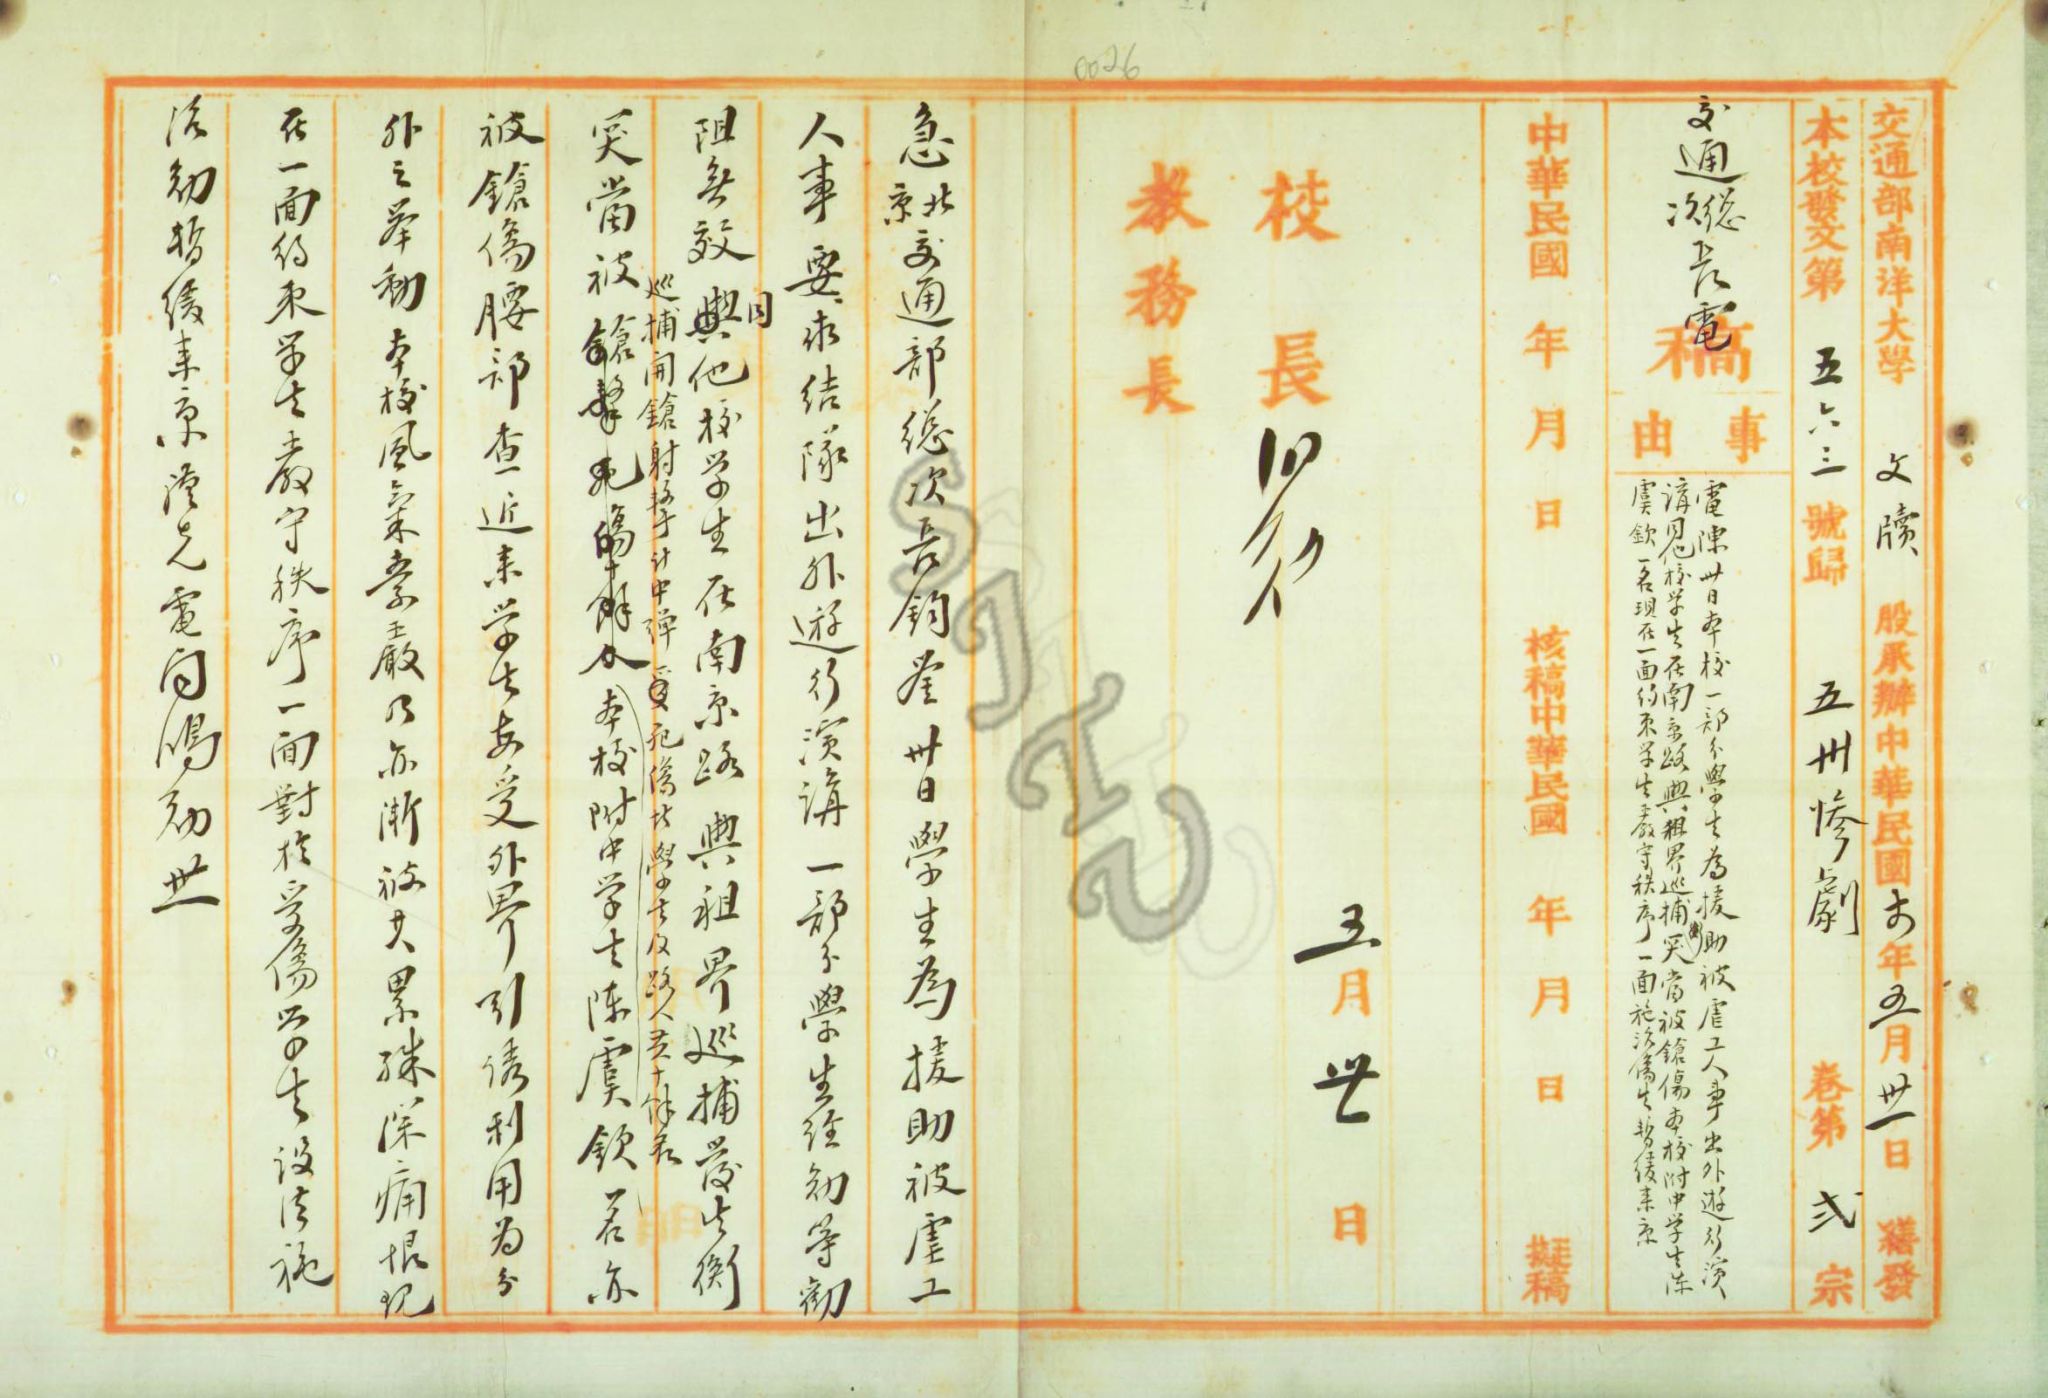 0026
交通部南洋大學 文牘 股承辦中華民國十四年五月卅一日繕發
本校發文第 五六三 號歸 五卅慘劇 卷第 弍 宗
交通總次長電
稿
事由
電陳卅日本校一部分學生為援助被虐工人事出外遊行演
講同他校學生在南京路與租界巡捕衝突當被鎗傷本校附中學生陳
虞欽一名現在一面約束學生嚴守秩序一面施治傷生暫緩來京
中華民國 年 月 日 核稿中華民國 年 月 日 擬稿
校長
五月卅一日
教務長
急北京交通部總次長鈞鉴卅日學生為援助被虐工
人事要求結隊出外遊行演講一部分學生經勸等勸
阻無效與同他校学生在南京路與租界巡捕發生衝
巡捕開鎗射擊計中彈受死傷者學生及路人共十餘名
突當被鎗擊死傷十餘人本校附中学生陳虞欽一名亦
被鎗傷腰部查近来学生每受外界引誘利用為分
外之举動本校風氣素嚴乃亦漸被其累殊深痛恨現
在一面約束学生嚴守秩序一面對於受傷学生設法施
治勋暫緩来京謹先電聞鴻勋卅一